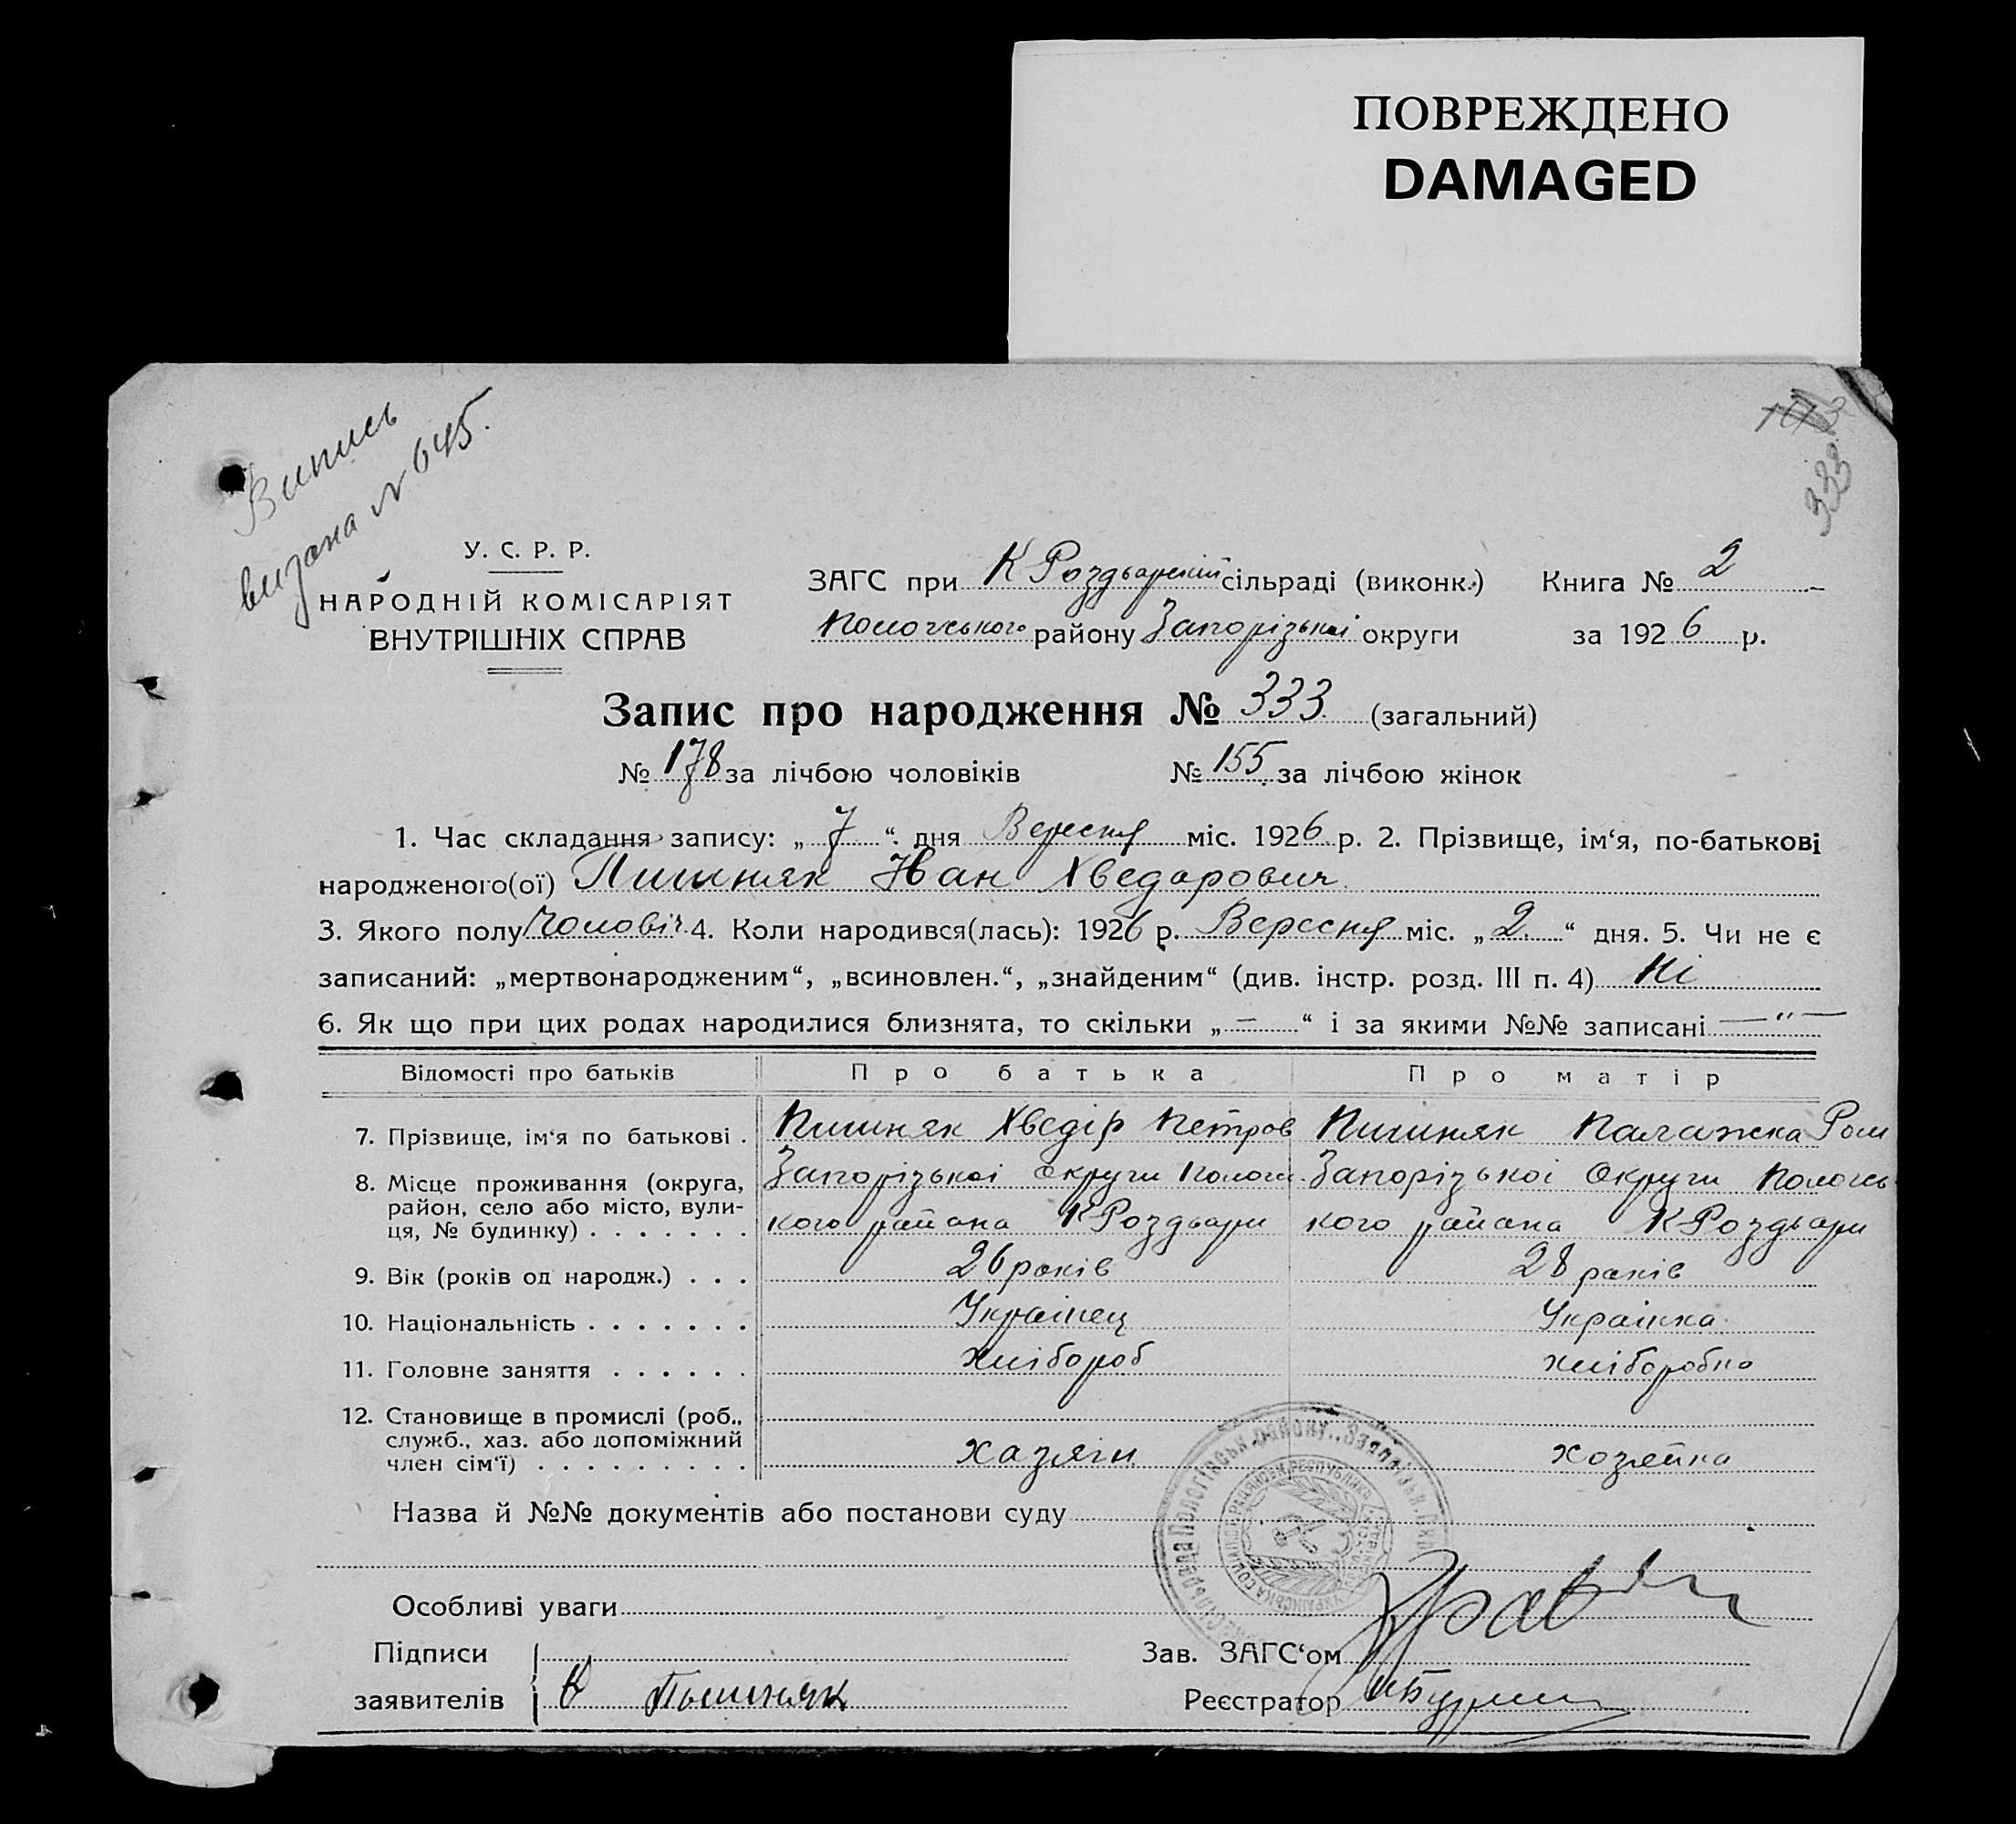 ПОВРЕЖДЕНО
DAMAGED
Випись
видана № 645.
333
У. С. Р. Р.
НАРОДНІЙ КОМІСАРІЯТ
ВНУТРІШНІХ СПРАВ
ЗАГС при К Роздорській сільраді (виконк.) Книга № 2
Пологського району Запорізької округи за 1926 р.
Запис про народження № 333 (загальний)
№ 178 за лічбою чоловіків № 155 за лічбою жінок
1. Час складання запису: „ 7 “ дня Вересня міс. 1926 р. 2. Прізвище, ім‘я, по-батькові
народженого(ої) Пишняк Иван Хведорович
3. Якого полу Чоловіч. 4. Коли народився(лась): 1926 р. Вересня міс. „ 2 “ дня. 5. Чи не є
записаний: „мертвонародженим“, „всиновлен.“, „знайденим“ (див. інстр. розд. III п. 4) Ні
6. Як що при цих родах народилися близнята, то скільки „ — “ і за якими №№ записані — “ —
Відомості про батьків Про батька Про матір
7. Прізвище, ім‘я по батькові . Пишняк Хведір Петров Пишняк Палажка Ром
8. Місце проживання (округа, Запорізькоі Округи Пологс Запорізькоі Округи Пологсь
район, село або місто, вули-
ця, № будинку) . . . . . . . кого района К Роздори кого района К Роздори
9. Вік (років од народж.) . . . 26 років 28 років
10. Національність . . . . . . . Украінец Украінка
11. Головне заняття . . . . . . хлібороб хліборобка
12. Становище в промислі (роб.,
служб., хаз. або допоміжний
член сім‘ї) . . . . . . . . . хазяін хозяйка
Назва й №№ документів або постанови суду
Особливі уваги
Підписи Зав. ЗАГС‘ом
заявителів Пышняк Реєстратор